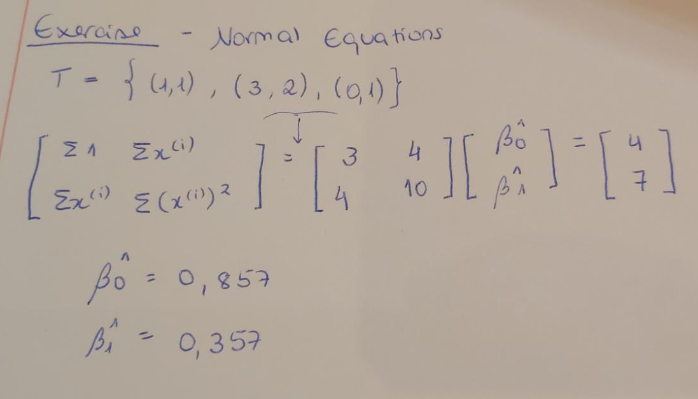 Exercise - Normal Equations
T = { (1,1) , (3,2), (0,1)}
[ Σ1 Σx⁽ⁱ⁾ ; Σx⁽ⁱ⁾ Σ(x⁽ⁱ⁾)² ] = [ 3 4 ; 4 10 ] [ β̂0 ; β̂1 ] = [ 4 ; 7 ]
β̂0 = 0,857
β̂1 = 0,357